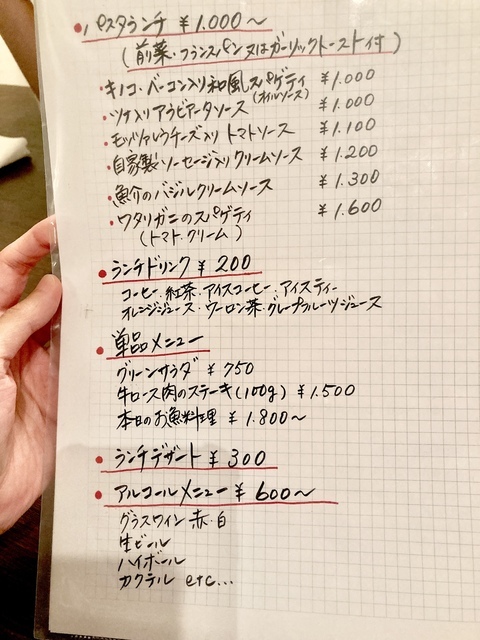 ・パスタランチ ¥1.000〜
(前菜・フランスパン又はガーリックトースト付)
・キノコ・ベーコン入り和風スパゲティ ¥1.000
(オイルソース)
・ツナ入りアラビアータソース ¥1.000
・モッツァレラチーズ入り トマトソース ¥1.100
・自家製ソーセージ入りクリームソース ¥1.200
・魚介のバジルクリームソース ¥1.300
・ワタリガニのスパゲティ ¥1.600
(トマト.クリーム)
・ランチドリンク ¥200
コーヒー.紅茶.アイスコーヒー.アイスティー
オレンジジュース・ウーロン茶・グレープフルーツジュース
・単品メニュー
グリーンサラダ ¥750
牛ロース肉のステーキ(100g) ¥1.500
本日のお魚料理 ¥1.800〜
・ランチデザート ¥300
・アルコールメニュー ¥600〜
グラスワイン 赤・白
生ビール
ハイボール
カクテル etc...